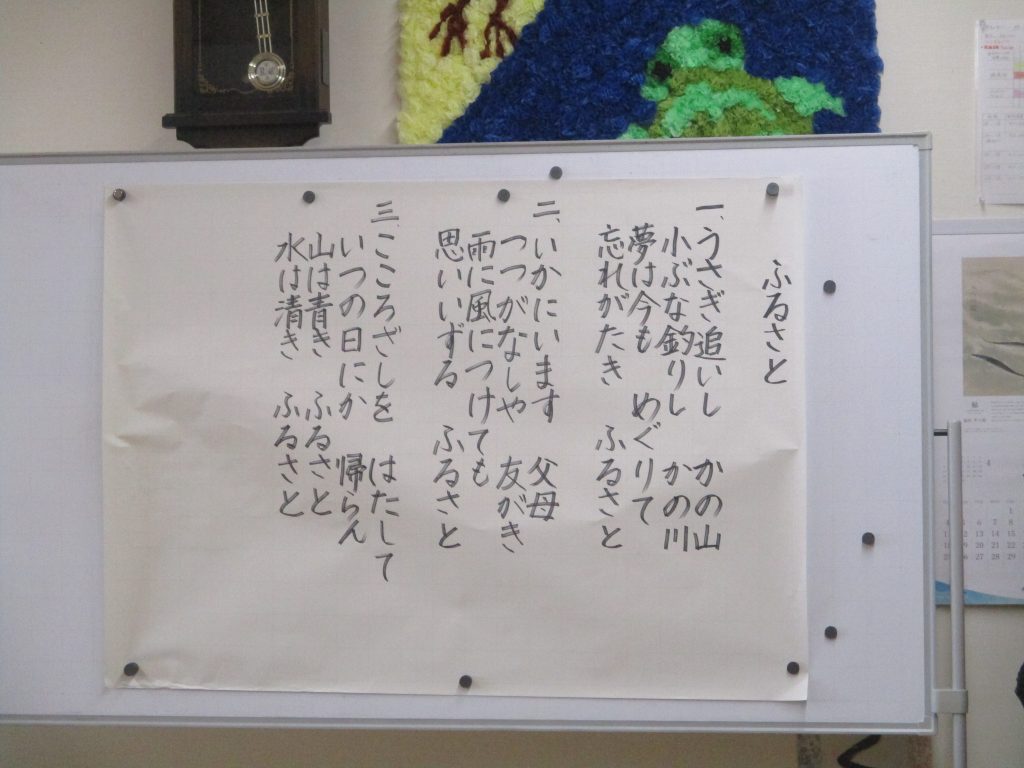 ふるさと
一、うさぎ追いし かの山
小ぶな釣りし かの川
夢は今も めぐりて
忘れがたき ふるさと
二、いかにいます 父母
つつがなしや 友がき
雨に風につけても
思いいずる ふるさと
三、こころざしを はたして
いつの日にか 帰らん
山は青き ふるさと
水は清き ふるさと